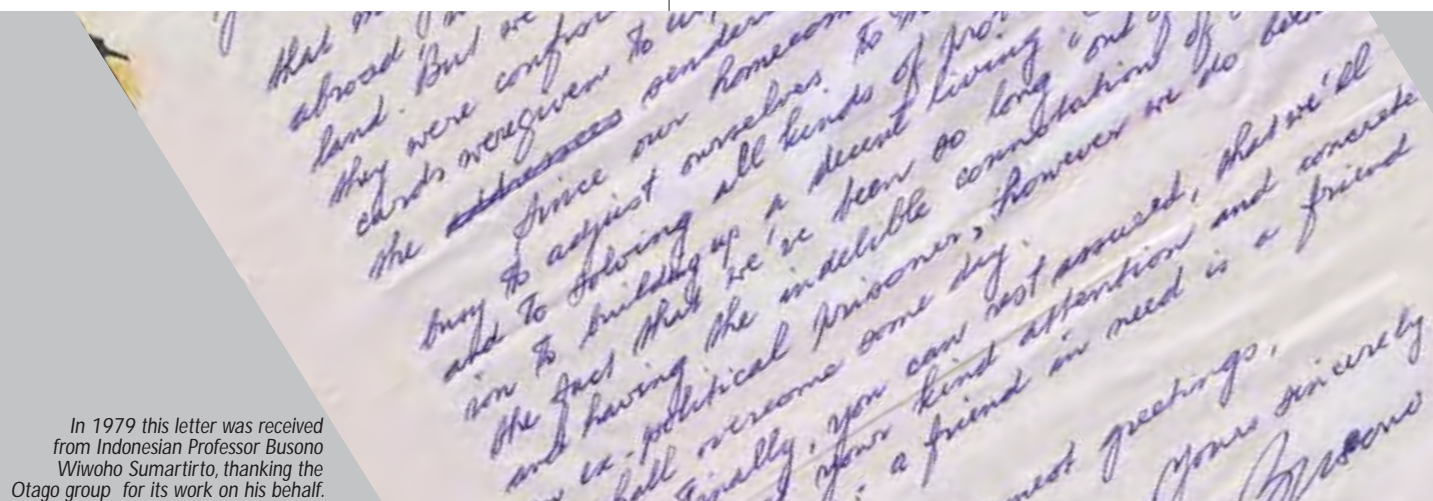 that
abroad
land. But we
they were
cards weregiven to
the addresses senders
Since our
busy to adjust ourselves to
and to solving all kinds of
ion to building up a decent living
the fact that we've been so long out of
and having the indelible connotation of
ex-political prisoner, however we do
shall overcome some day.
Finally, you can rest assured, that we'll
your kind attention and concrete
a friend in need is a friend
greetings,
Yours sincerely
Busono
In 1979 this letter was received
from Indonesian Professor Busono
Wiwoho Sumartirto, thanking the
Otago group for its work on his behalf.